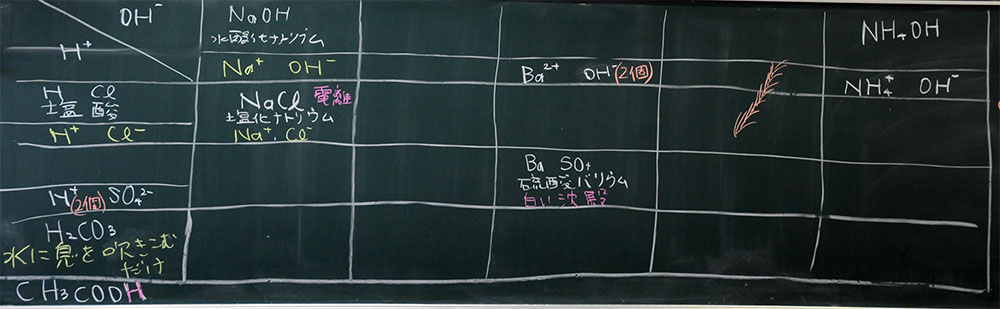 OH⁻
H⁺
NaOH
水酸化ナトリウム
NH₄OH
Na⁺ OH⁻
Ba²⁺ OH⁻(2個)
NH₄⁺ OH⁻
H Cl
塩 酸
NaCl 電離
塩化ナトリウム
H⁺ Cl⁻
Na⁺, Cl⁻
Ba SO₄
硫酸バリウム
白い沈殿
H⁺(2個) SO₄²⁻
H₂CO₃
水に息を吹きこむ
だけ
CH₃COOH